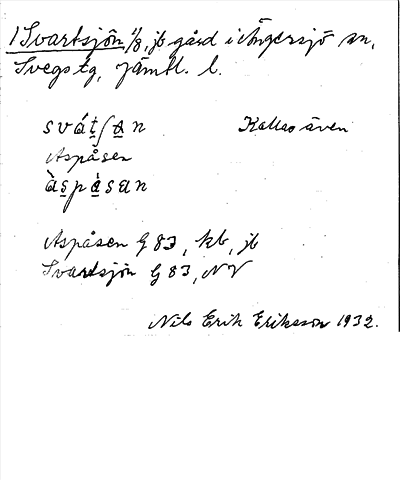 1 Svartsjön 1/8, jb gård i Ängersjö sn,
Svegs tg, Jämtl. l.
svát̠ʃa̠n Kallas även
Aspåsen
às̠pà̠san
Aspåsen G 83, kb, jb
Svartsjön G 83, NV
Nils Erik Eriksson 1932.